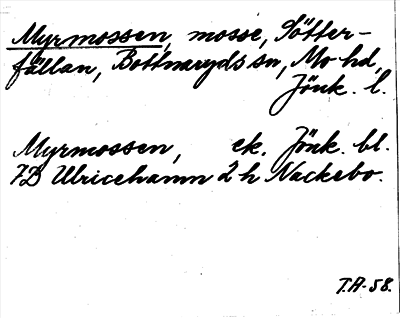 Myrmossen, mosse, Sötter-
fällan, Bottnaryds sn, Mo hd,
Jönk. l.
Myrmossen, ek. Jönk. bl.
7D Ulricehamn 2 h Nackebo.
T.A-58.